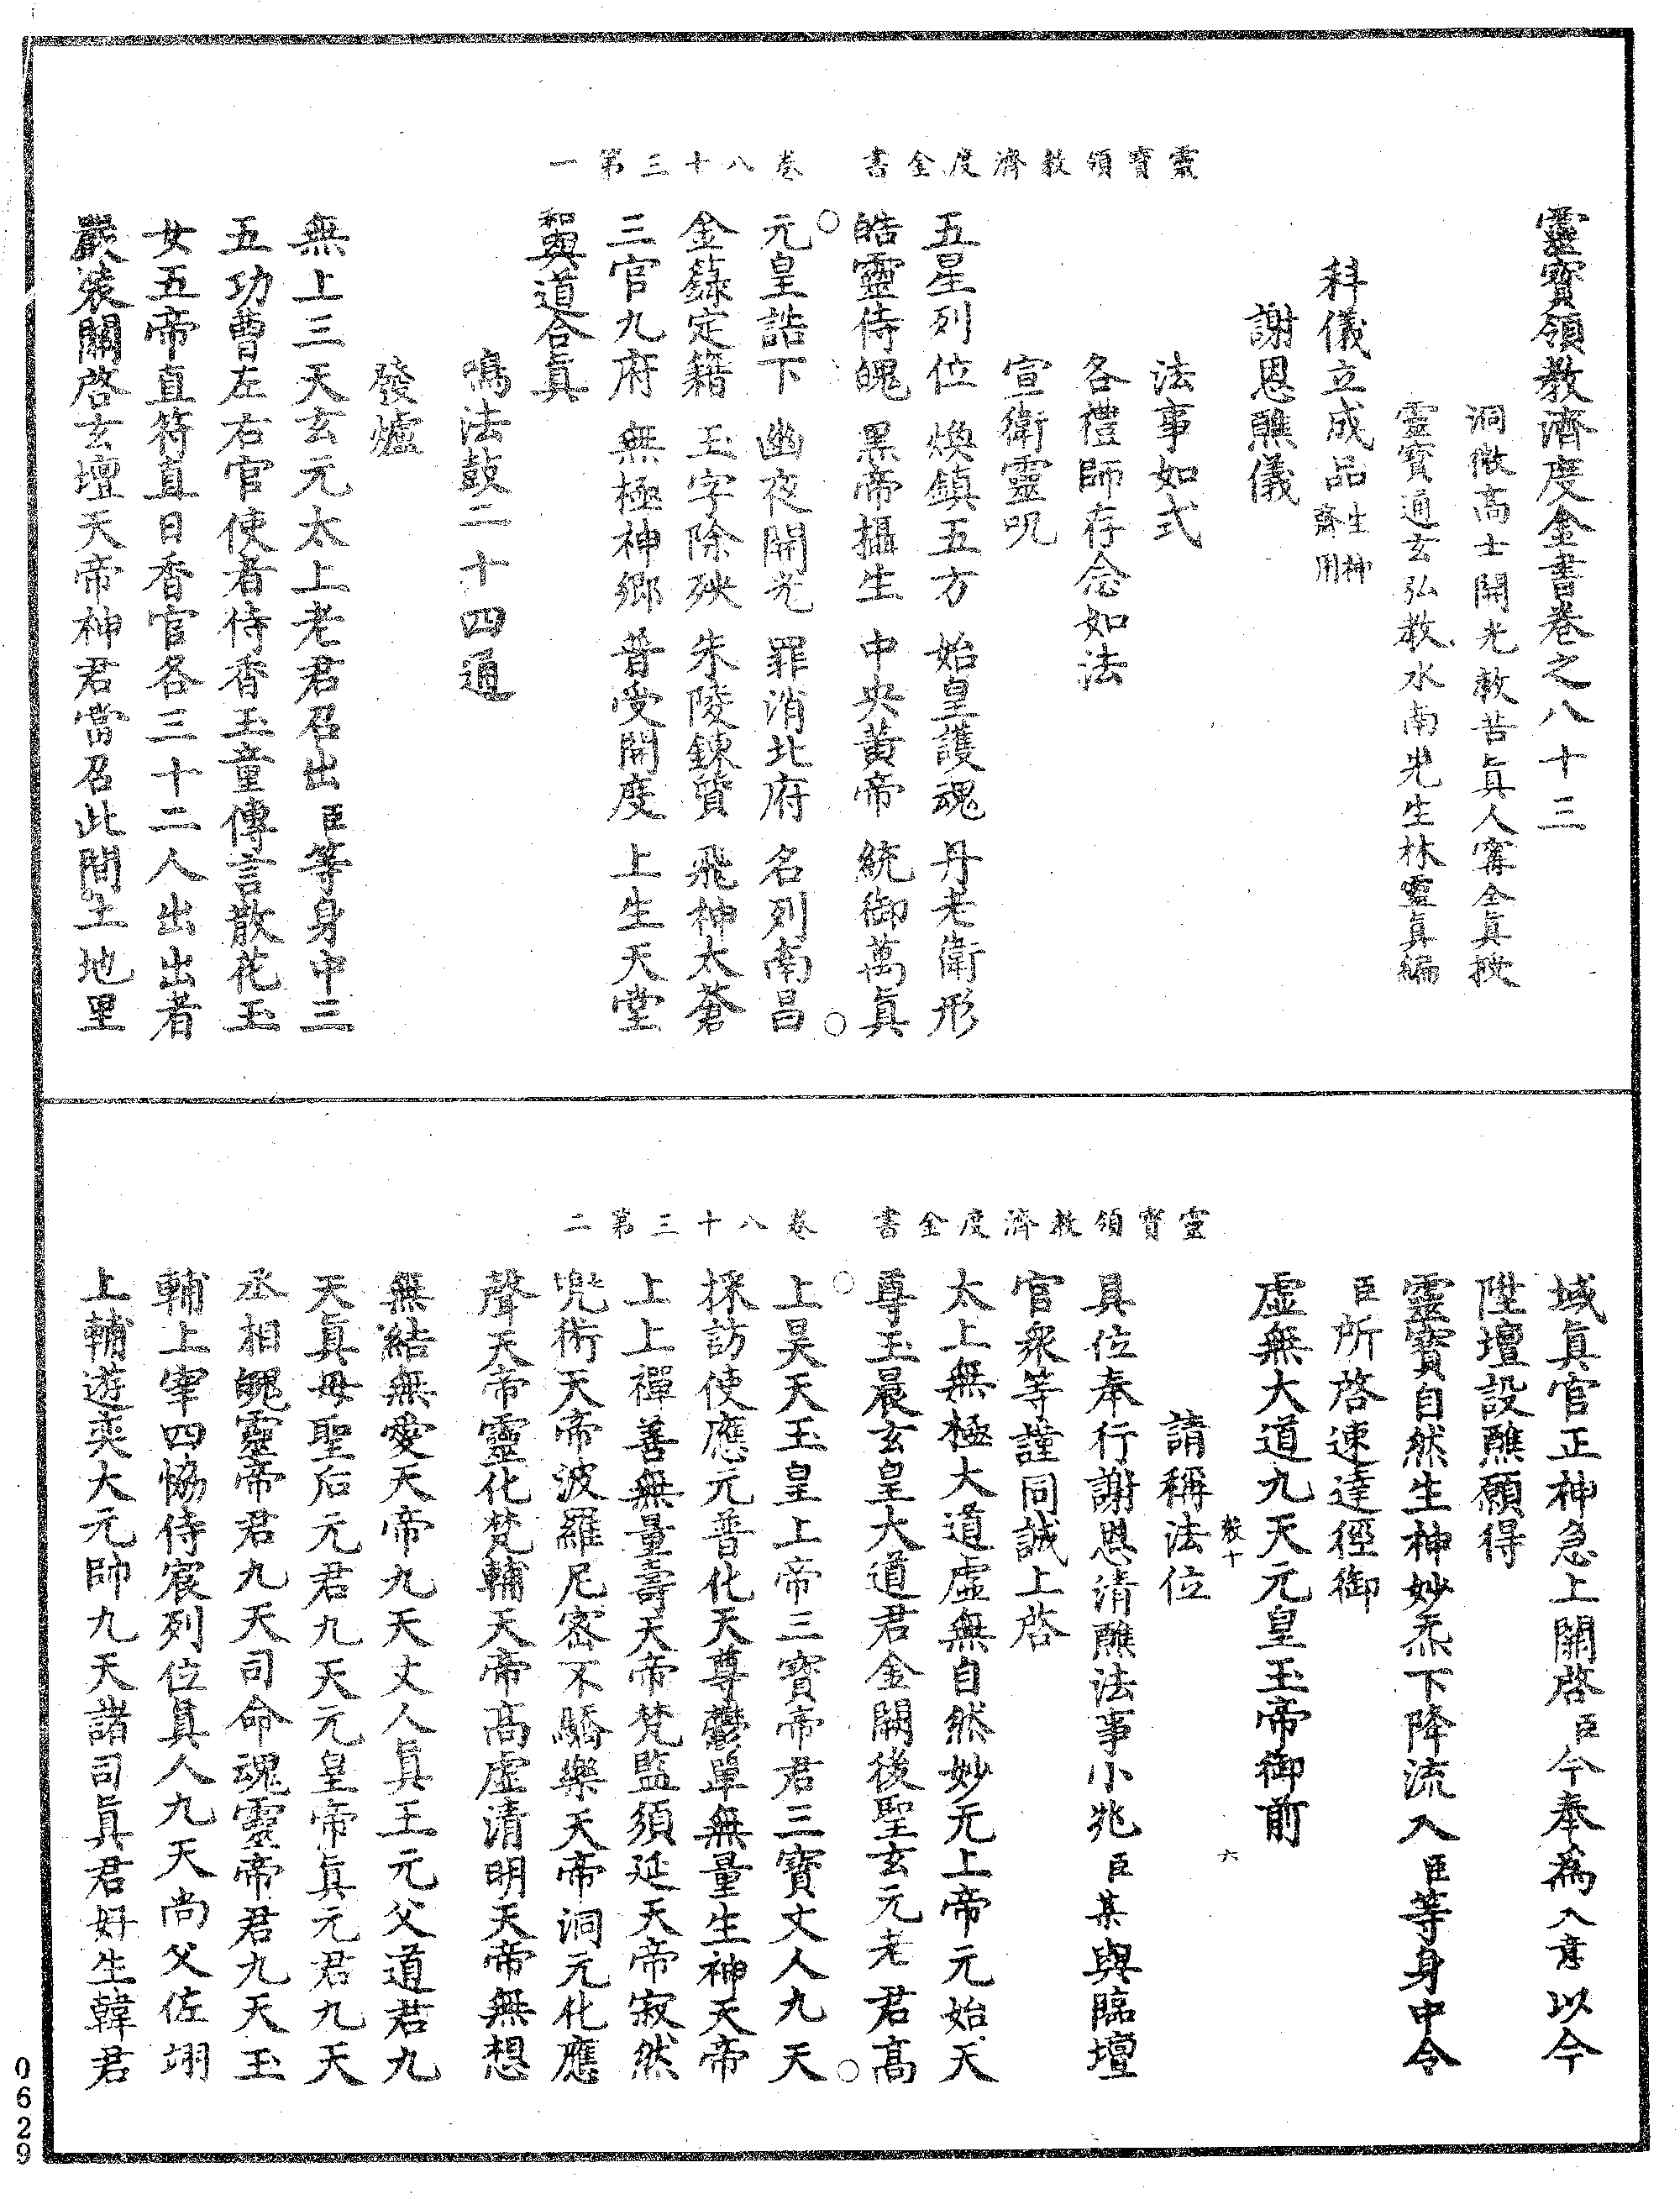 靈寶領教濟度金書卷之八十三
洞微高士開光救苦眞人寗全眞授
靈寶通玄弘教水南先生林靈眞編
科儀立成品生神齋用
謝恩醮儀
法事如式
各禮師存念如法
宣衛靈呪
五星列位 煥鎮五方 始皇護魂 丹老衛形
皓靈侍魄 黑帝攝生 中央黃帝 統御萬眞
元皇誥下 幽夜開光 罪消北府 名列南昌
金籙定籍 玉字除殃 朱陵鍊質 飛神太蒼
三官九府 無極神鄉 普受開度 上生天堂
與道合眞
鳴法鼓二十四通
發爐
無上三天玄元太上老君召出臣等身中三
五功曹左右官使者侍香玉童傳言散花玉
女五帝直符直日香官各三十二人出出者
嚴裝關啓玄壇天帝神君當召此間土地里
靈寶領教濟度金書 卷八十三第一
域眞官正神急上關啓臣今奉爲入意以今
陞壇設醮願得
靈寶自然生神妙炁下降流入臣等身中令
臣所啓速達徑御
虛無大道九天元皇玉帝御前
請稱法位
具位奉行謝恩清醮法事小兆臣某與臨壇
官衆等謹同誠上啓
太上無極大道虛無自然妙无上帝元始天
尊玉晨玄皇大道君金闕後聖玄元老君高
上昊天玉皇上帝三寶帝君三寶丈人九天
採訪使應元普化天尊鬱單無量生神天帝
上上禪善無量壽天帝梵監須延天帝寂然
兜術天帝波羅尼密不驕樂天帝洞元化應
聲天帝靈化梵輔天帝高虛清明天帝無想
無結無愛天帝九天丈人眞王元父道君九
天眞母聖后元君九天元皇帝眞元君九天
丞相魄靈帝君九天司命魂靈帝君九天玉
輔上宰四恊侍宸列位眞人九天尚父佐翊
上輔遊奕大元帥九天諸司眞君好生韓君
靈寶領教濟度金書 卷八十三第二
散十
六
0629